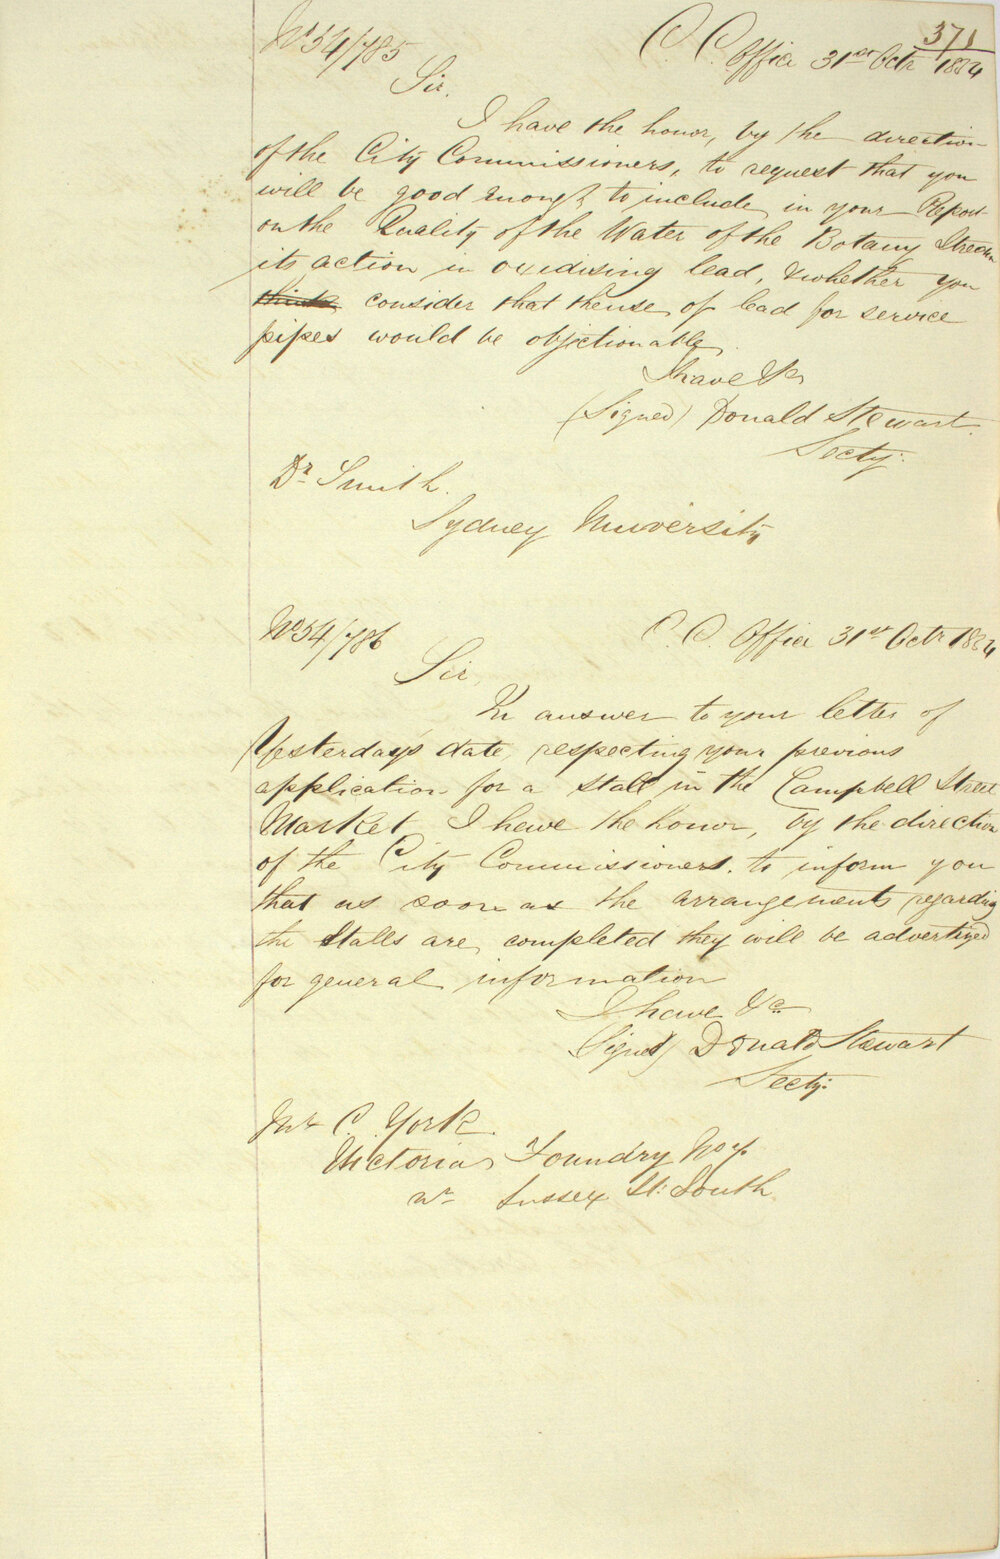 371
No 54/785 C. C. Office 31st Octr 1854
Sir,
I have the honor, by the direction
of the City Commissioners, to request that you
will be good enough to include in your Report
on the Quality of the Water of the Botany Stream
its action in oxidising lead, & whether you
think consider that the use of lead for service
pipes would be objectionable
I have &c
(Signed) Donald Stewart.
Secty:
Dr Smith.
Sydney University
No 54/786 C. C. Office 31st Octr 1854
Sir,
In answer to your letter of
Yesterday's date, respecting your previous
application for a stall in the Campbell Street
Market I have the honor, by the direction
of the City Commissioners. to inform you
that as soon as the arrangements regarding
the Stalls are completed they will be advertized
for general information
I have &c.
Signed) Donald Stewart
Secty:
Mr C. York.
Victoria Foundry
Sussex St: South